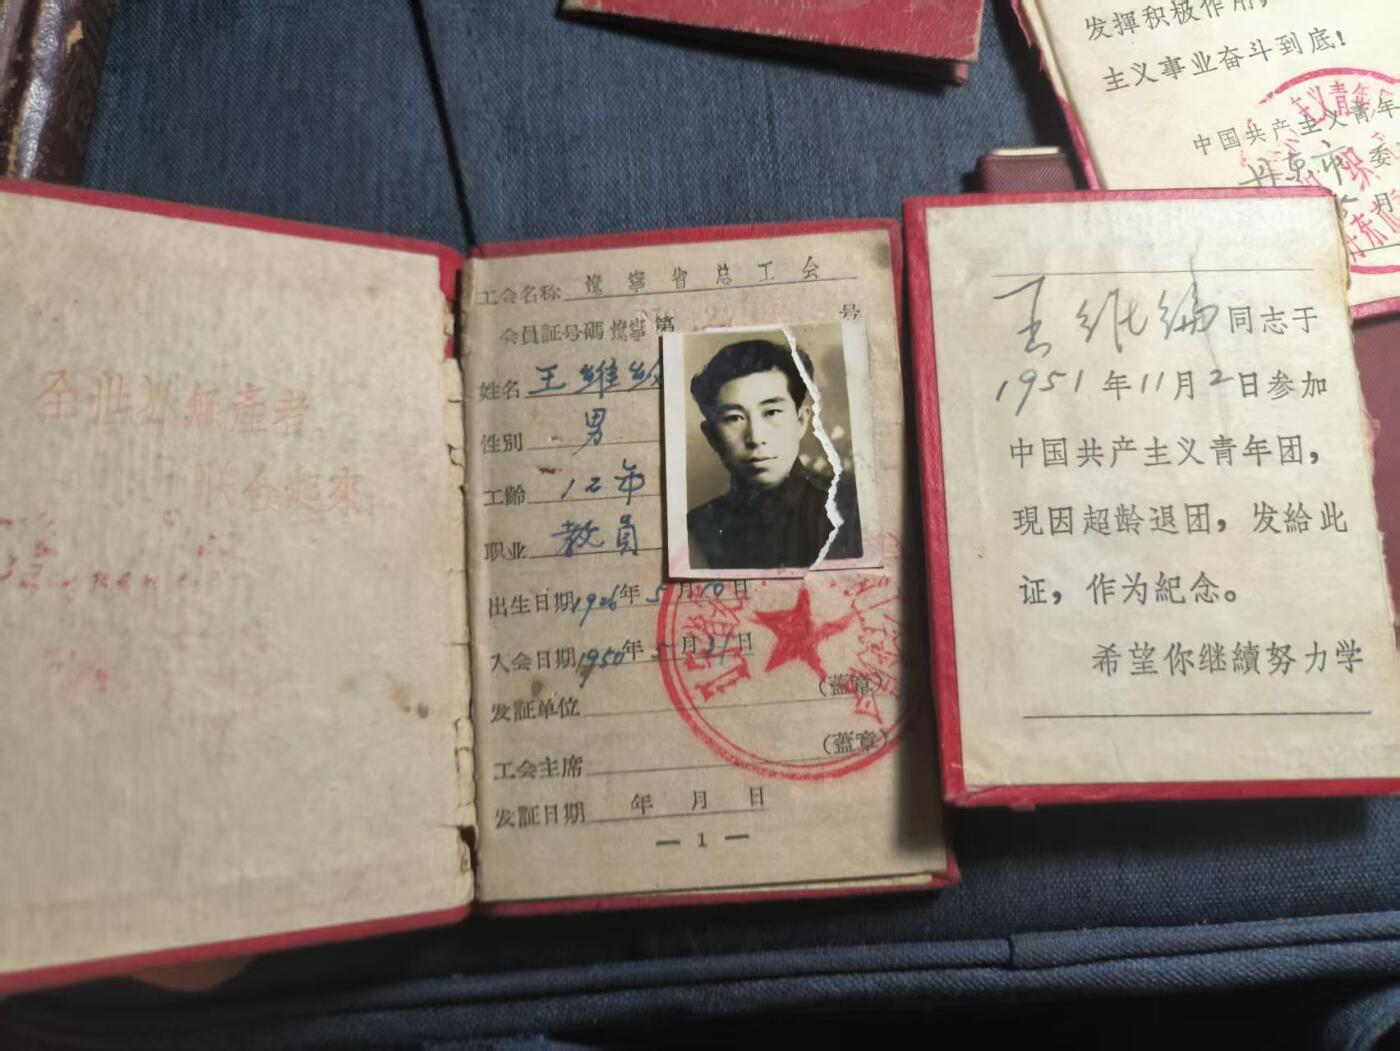 全世界無產者
联合起來
工会名称 遼寧省总工会
会員証号碼 遼寧第 号
姓名 王維
性別 男
工齡 12年
职业 教員
出生日期1926年5月10日
入会日期1950年5月31日
发証单位 (蓋章)
工会主席 (蓋章)
发証日期 年 月 日
— 1 —
王維 同志于
1951年11月2日参加
中国共产主义青年团，
現因超龄退团，发給此
证，作为紀念。
希望你继續努力学
发揮积极作用，
主义事业奋斗到底！
中国共产主义青年
丹东市委
月